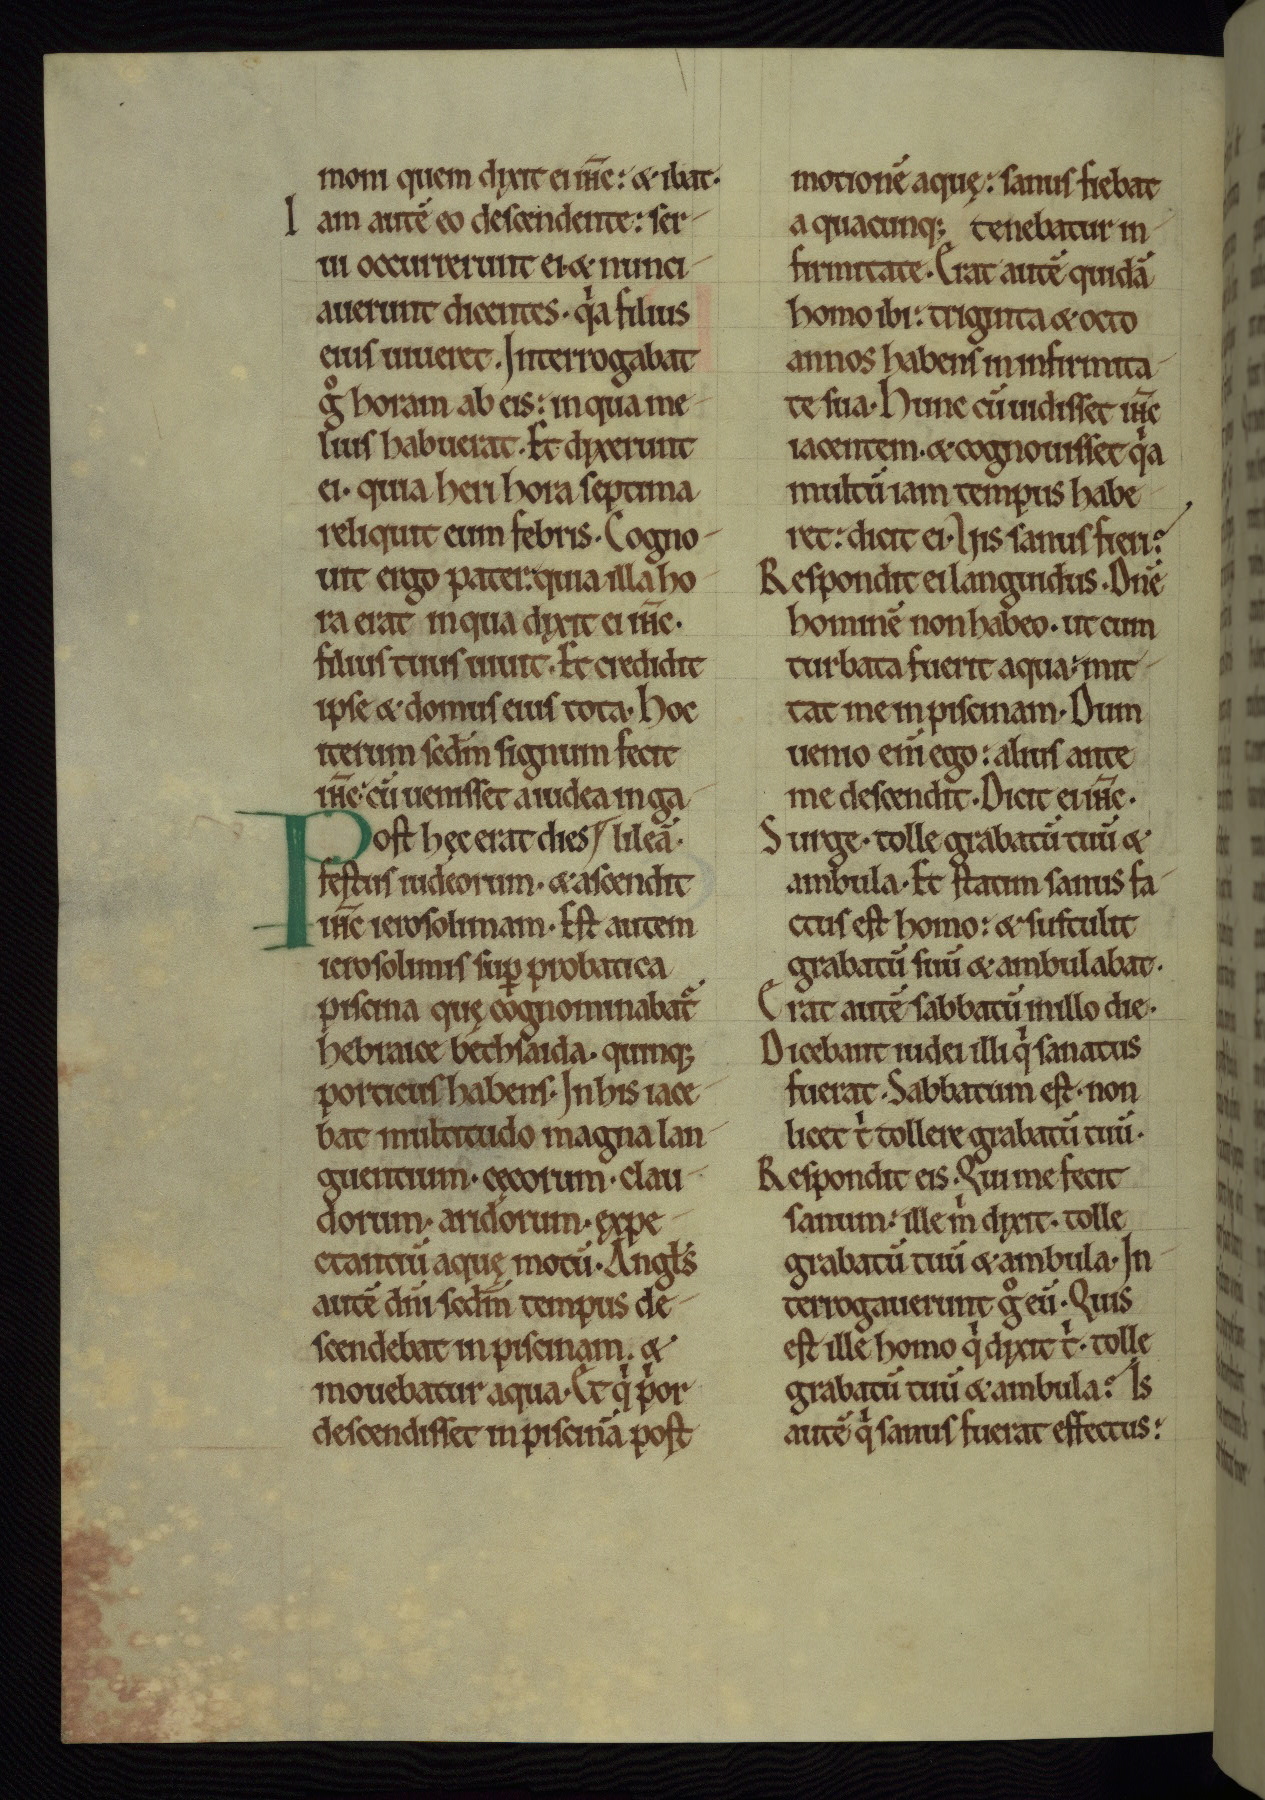 moni quem dixit ei ihc̄: & ibat.
Iam autē eo descendente: ser-
ui occurrerunt ei & nunci-
auerunt dicentes. qⁱa filius
eius uiueret. Interrogabat
gͦ horam ab eis: in qua me-
lius habuerat. Et dixerunt
ei. quia heri hora septima
reliquit eum febris. Cogno-
uit ergo pater: quia illa ho-
ra erat in qua dixit ei ihc̄.
filius tuus uiuit. Et credidit
ipse & domus eius tota. Hoc
iterum scdm̄ signum fecit
ihc̄: cū uenisset a iudea in ga-
lileā.
Post hęc erat dies
festus iudeorum. & ascendit
ihc̄ ierosolimam. Est autem
ierosolimis suꝑ probatica
piscina quę cognominabat᷑
hebraice bethsaida. quinq;
porticus habens. In his iace-
bat multitudo magna lan-
guentium. cęcorum. clau-
dorum. aridorum. expe-
ctantiū aquę motū. Angl̄s
autē dn̄i scdm̄ tempus de-
scendebat in piscinam. &
mouebatur aqua. Et qⁱ pⁱor
descendisset in piscinā post
motionē aquę: sanus fiebat
a quacunq; tenebatur in-
firmitate. Erat autē quidā
homo ibi: triginta & octo
annos habens in infirmita-
te sua. Hunc cū uidisset ihc̄
iacentem. & cognouisset qⁱa
multū iam tempus habe-
ret: dicit ei. Uis sanus fieri?
Respondit ei languidus. Dn̄e
hominē non habeo. ut cum
turbata fuerit aqua: mit-
tat me in piscinam. Dum
uenio eni̅ ego: alius ante
me descendit. Dicit ei ihc̄.
Surge. tolle grabatū tuū &
ambula. Et statim sanus fa-
ctus est homo: & sustulit
grabatū suū & ambulabat.
Erat autē sabbatū in illo die.
Dicebant iudei illi qⁱ sanatus
fuerat. Sabbatum est. non
licet tⁱ tollere grabatū tuū.
Respondit eis. Qui me fecit
sanum: ille mⁱ dixit. tolle
grabatū tuū & ambula. In-
terrogauerunt gͦ eū. Quis
est ille homo qⁱ dixit tⁱ. tolle
grabatū tuū & ambula? Is
autē qⁱ sanus fuerat effectus: